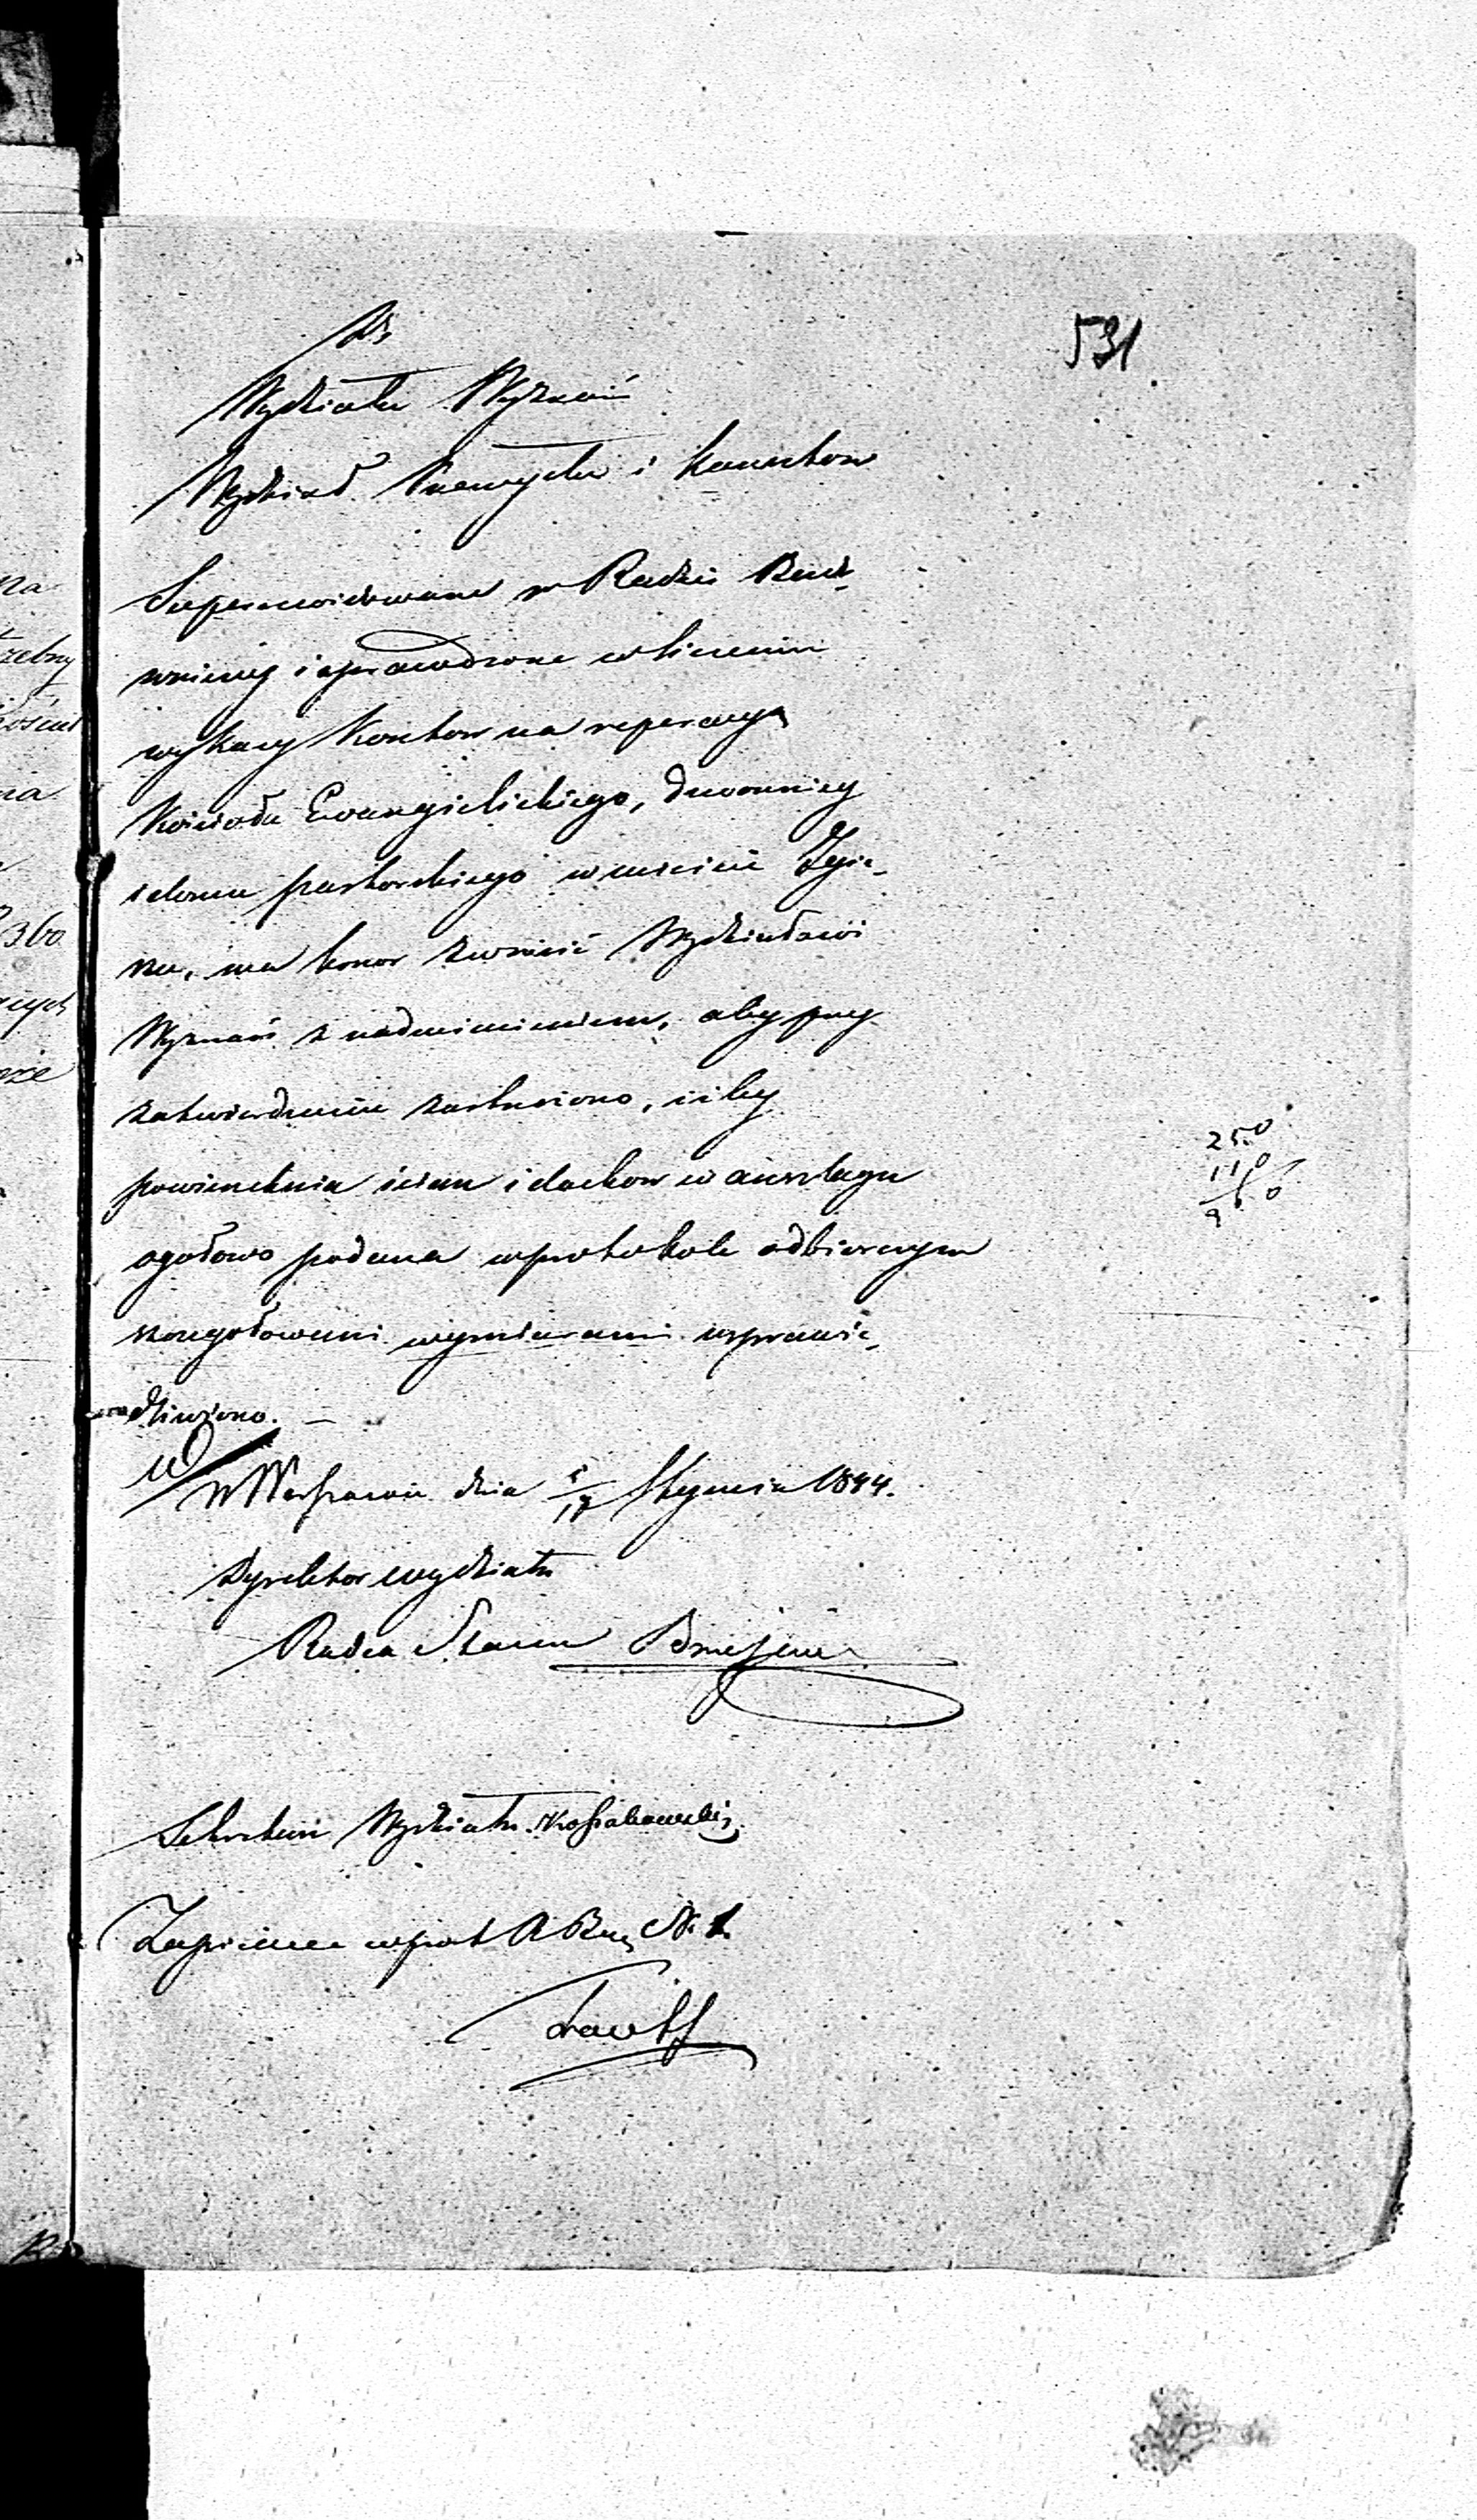 531
Do
Wydziału Wyznań
Wydział Przemysłu i Kunsztów
Superrewidowane w Radzie Budo-
wniczej i sprawdzone w liczeniu
wykazy kosztów na reperacyą
Kościoła Ewangielickiego, dzwonnicy
i domu pastorskiego w mieście Zgie-
rzu, ma honor zwrócić Wydziałowi
Wyznań z nadmienieniem, aby przy
zatwierdzeniu zastrzeżono, iżby
powierzchnia ścian i dachów w anszlagu
ogółowo podana w protokole odbiorczym
szczegółowemi wymiarami usprawie-
dliwiono. —
w Warszawie dnia 5/17 Stycznia 1844.
Dyrektor Wydziału
Radca Stanu
Sekretarz Wydziału
Zapisane w prot № 1
250
110